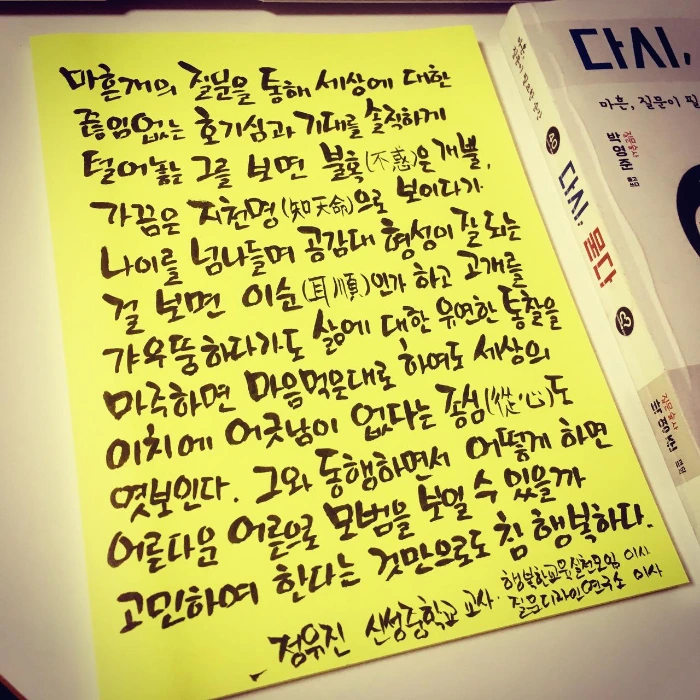 마흔개의 질문을 통해 세상에 대한
끊임없는 호기심과 기대를 솔직하게
털어놓는 그를 보면 불혹(不惑)은 개뿔,
가끔은 지천명(知天命)으로 보이다가
나이를 넘나들며 공감대 형성이 잘 되는
걸 보면 이순(耳順)인가 하고 고개를
갸우뚱하다가도 삶에 대한 유연한 통찰을
마주하면 마음먹은대로 하여도 세상의
이치에 어긋남이 없다는 종심(從心)도
엿보인다. 그와 동행하면서 어떻게 하면
어른다운 어른으로 모범을 보일 수 있을까
고민하여 한다는 것만으로도 참 행복하다.
정유진 신성중학교 교사·행복한교육실천모임 이사
질문디자인연구소 이사
다시,
마흔, 질문이 필
질문술사
박영준
다시, 묻다
질문술사
박영준